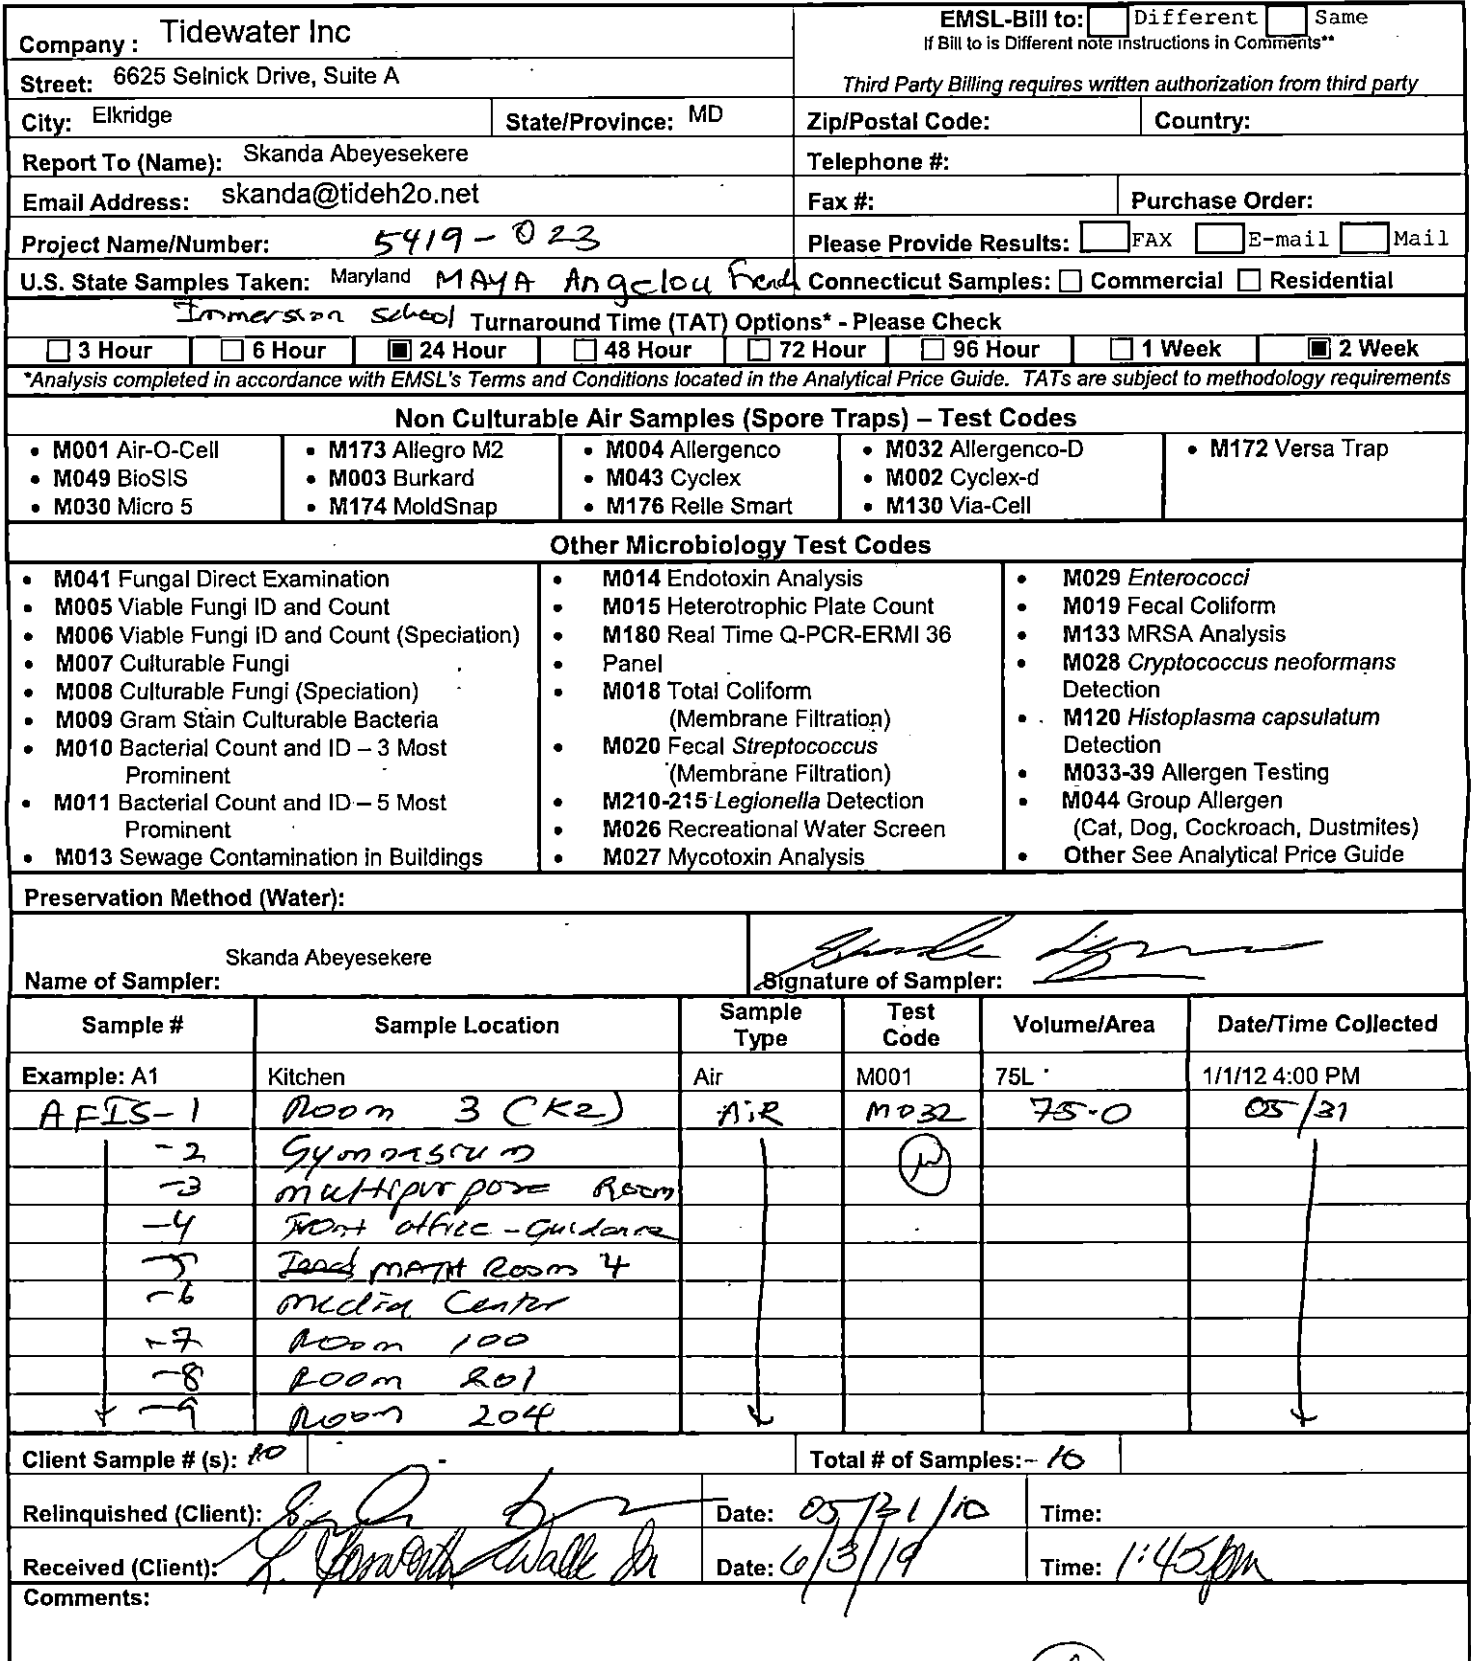 Company: Tidewater Inc
EMSL-Bill to: Different Same
If Bill to is Different note instructions in Comments**
Street: 6625 Selnick Drive, Suite A
Third Party Billing requires written authorization from third party
City: Elkridge State/Province: MD Zip/Postal Code: Country:
Report To (Name): Skanda Abeyesekere Telephone #:
Email Address: skanda@tideh2o.net Fax #: Purchase Order:
Project Name/Number: 5419-023 Please Provide Results: FAX E-mail Mail
U.S. State Samples Taken: Maryland MAYA Angelou French Connecticut Samples: ☐ Commercial ☐ Residential
Immersion School Turnaround Time (TAT) Options* - Please Check
☐ 3 Hour ☐ 6 Hour ■ 24 Hour ☐ 48 Hour ☐ 72 Hour ☐ 96 Hour ☐ 1 Week ■ 2 Week
*Analysis completed in accordance with EMSL's Terms and Conditions located in the Analytical Price Guide. TATs are subject to methodology requirements
Non Culturable Air Samples (Spore Traps) – Test Codes
• M001 Air-O-Cell • M173 Allegro M2 • M004 Allergenco • M032 Allergenco-D • M172 Versa Trap
• M049 BioSIS • M003 Burkard • M043 Cyclex • M002 Cyclex-d
• M030 Micro 5 • M174 MoldSnap • M176 Relle Smart • M130 Via-Cell
Other Microbiology Test Codes
• M041 Fungal Direct Examination
• M005 Viable Fungi ID and Count
• M006 Viable Fungi ID and Count (Speciation)
• M007 Culturable Fungi
• M008 Culturable Fungi (Speciation)
• M009 Gram Stain Culturable Bacteria
• M010 Bacterial Count and ID – 3 Most
Prominent
• M011 Bacterial Count and ID – 5 Most
Prominent
• M013 Sewage Contamination in Buildings
• M014 Endotoxin Analysis
• M015 Heterotrophic Plate Count
• M180 Real Time Q-PCR-ERMI 36
• Panel
• M018 Total Coliform
(Membrane Filtration)
• M020 Fecal Streptococcus
(Membrane Filtration)
• M210-215 Legionella Detection
• M026 Recreational Water Screen
• M027 Mycotoxin Analysis
• M029 Enterococci
• M019 Fecal Coliform
• M133 MRSA Analysis
• M028 Cryptococcus neoformans
Detection
• M120 Histoplasma capsulatum
Detection
• M033-39 Allergen Testing
• M044 Group Allergen
(Cat, Dog, Cockroach, Dustmites)
• Other See Analytical Price Guide
Preservation Method (Water):
Name of Sampler: Skanda Abeyesekere Signature of Sampler:
Sample # Sample Location Sample Type Test Code Volume/Area Date/Time Collected
Example: A1 Kitchen Air M001 75L 1/1/12 4:00 PM
AFIS-1 Room 3 (K2) AIR M032 75.0 05/31
-2 Gymnasium
-3 multipurpose Room
-4 Front office - Guidance
-5 MATH Room 4
-6 media Center
-7 Room 100
-8 Room 201
-9 Room 204
Client Sample # (s): 10 Total # of Samples: - 10
Relinquished (Client): Date: 05/31/10 Time:
Received (Client): Date: 6/3/19 Time: 1:45pm
Comments: